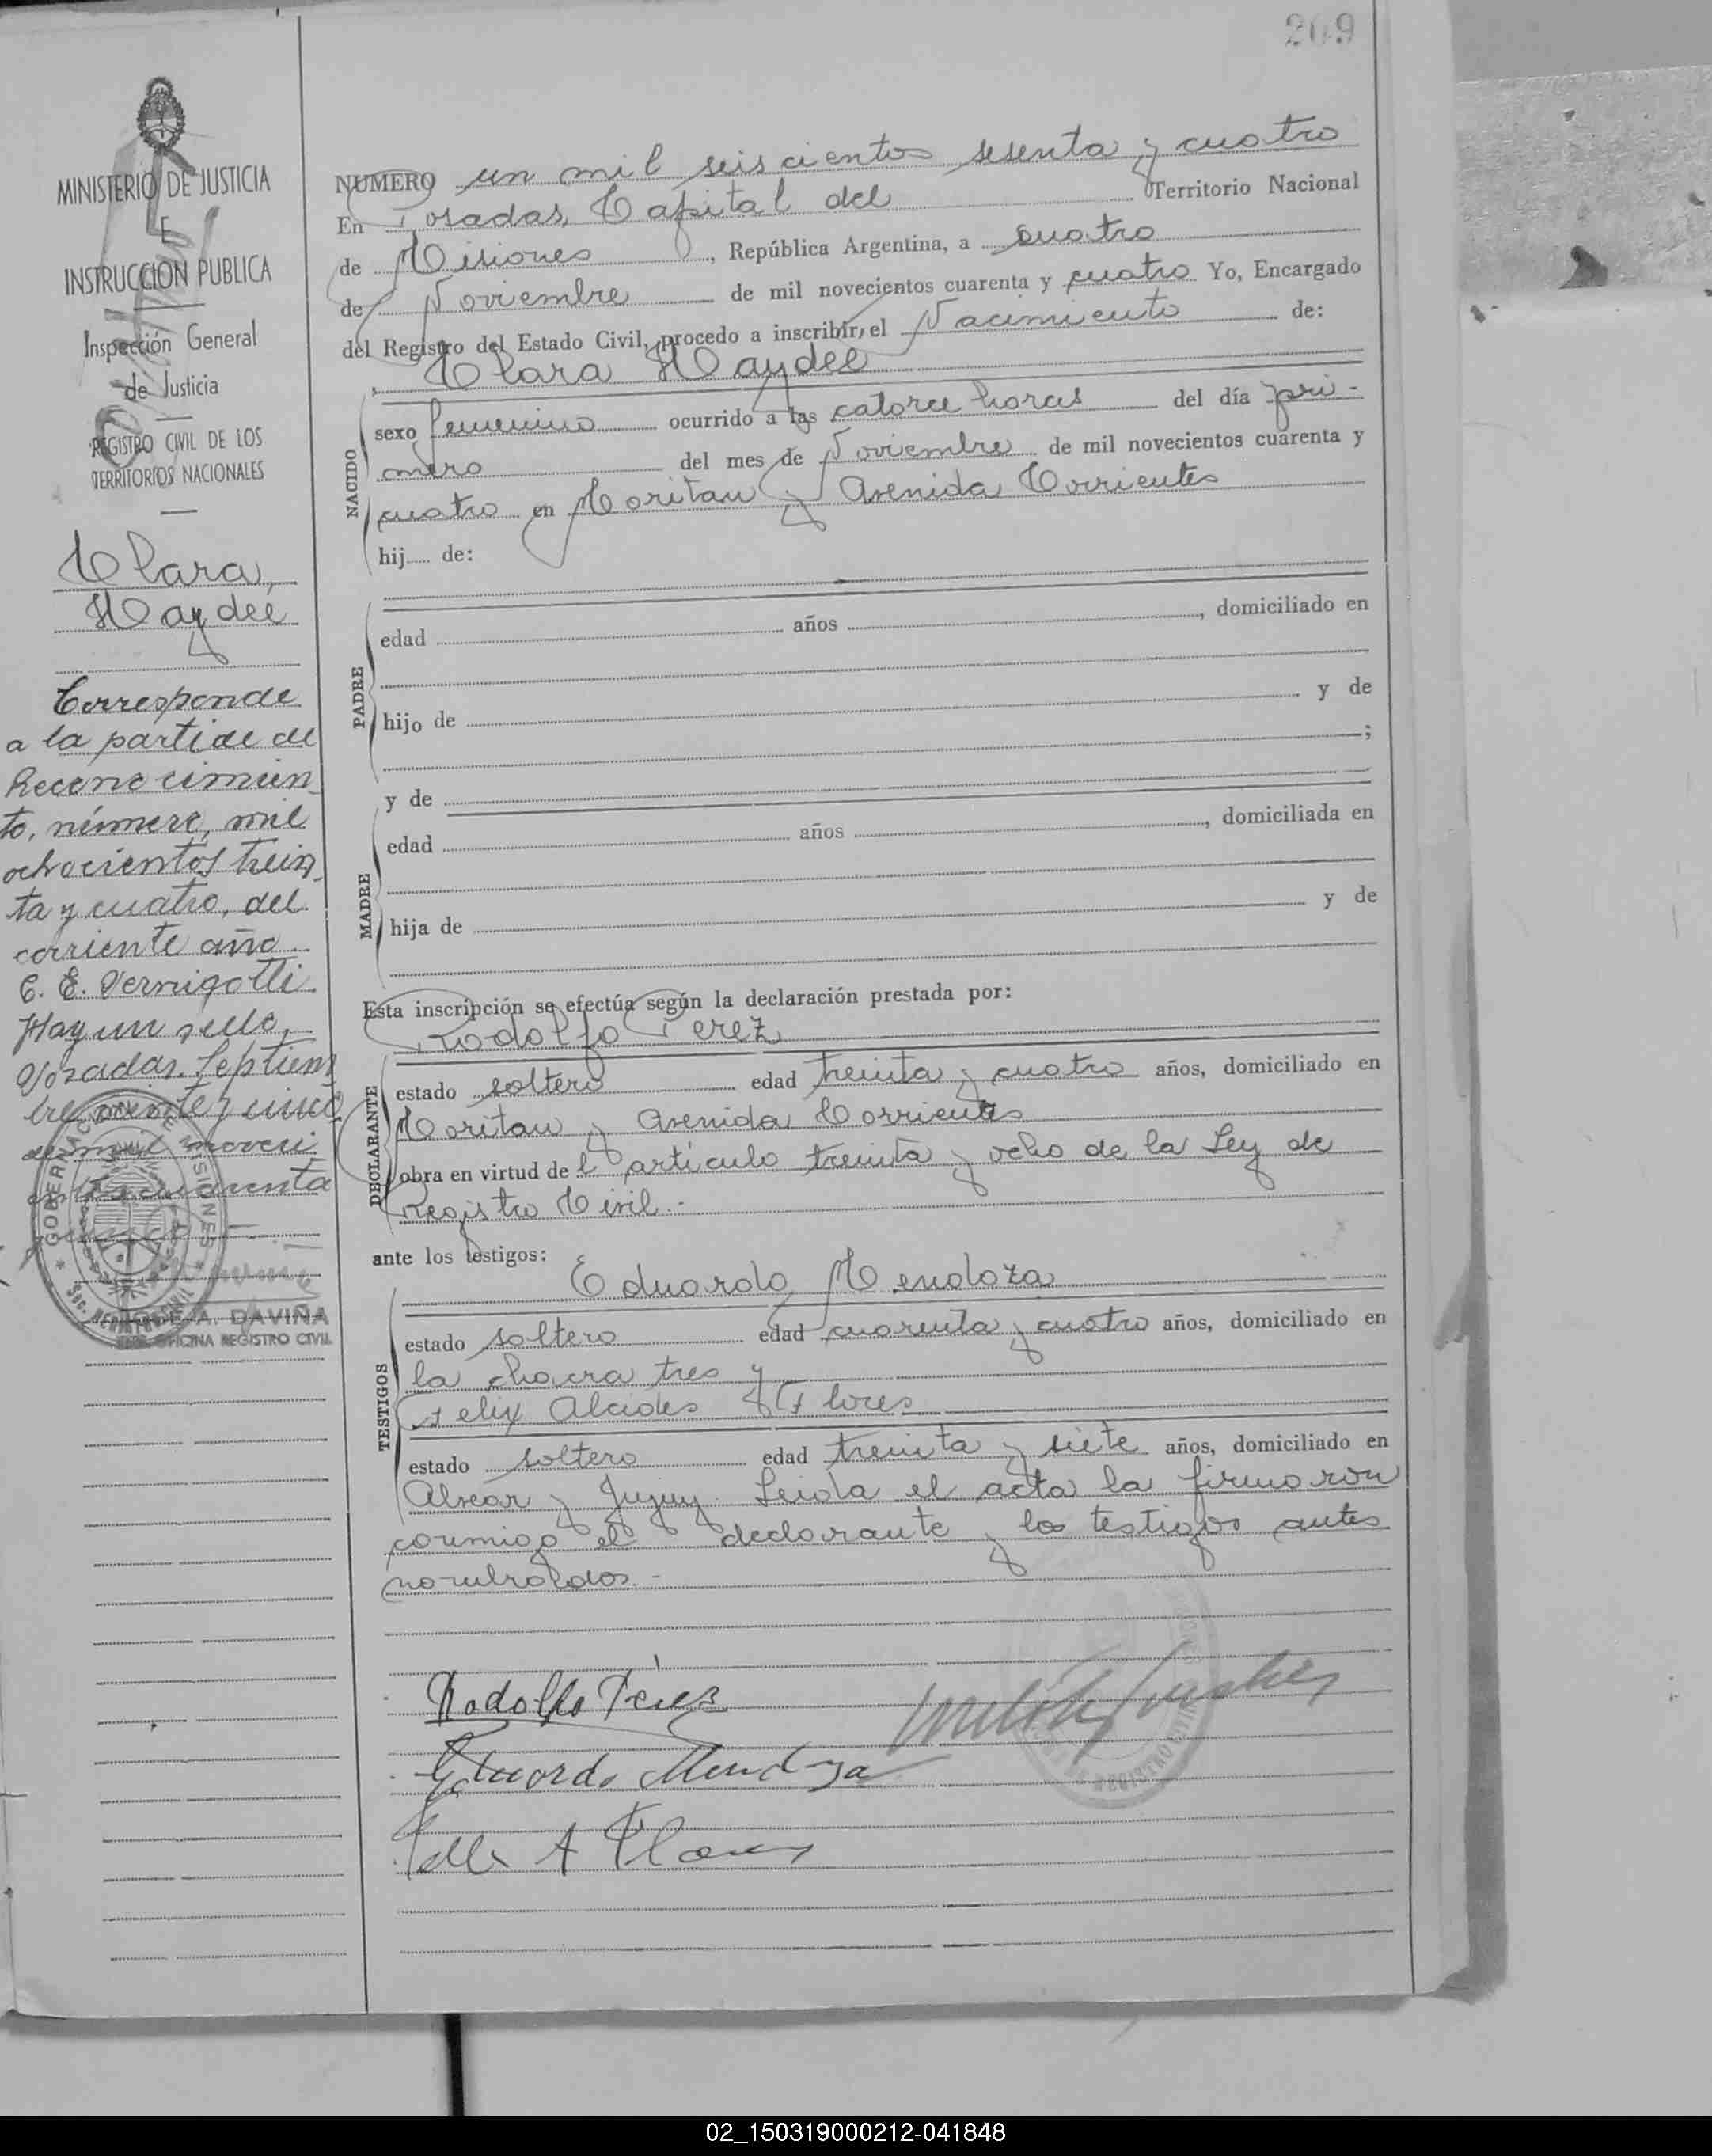 209
MINISTERIO DE JUSTICIA
E
INSTRUCCION PUBLICA
Inspección General
de Justicia
REGISTRO CIVIL DE LOS
TERRITORIOS NACIONALES
Clara
Haydee
Corresponde
a la partida de
Reconocimien
to, número, mil
ochocientos trein
ta y cuatro, del
corriente año.
C. E. Vernigotti
Hay un sello,
Posadas. Septiem
bre veinte y cinco
de mil noveci
entos cuarenta
JOSE A. DAVIÑA
OFICINA REGISTRO CIVIL
NUMERO un mil seiscientos sesenta y cuatro
En Posadas, Capital del Territorio Nacional
de Misiones, República Argentina, a cuatro
de Noviembre de mil novecientos cuarenta y cuatro Yo, Encargado
del Registro del Estado Civil, procedo a inscribir, el Nacimiento de:
Clara Haydee
NACIDO
sexo femenino ocurrido a las catorce horas del día pri-
mero del mes de Noviembre de mil novecientos cuarenta y
cuatro en Moritan y Avenida Corrientes
hij..... de:
PADRE
edad años , domiciliado en
hijo de y de
;
y de
MADRE
edad años , domiciliada en
hija de y de
Esta inscripción se efectúa según la declaración prestada por:
Rodolfo Perez
DECLARANTE
estado soltero edad treinta y cuatro años, domiciliado en
Moritan y Avenida Corrientes
obra en virtud de l artículo treinta y ocho de la Ley de
Registro Civil.-
ante los testigos:
Eduardo Mendoza
TESTIGOS
estado soltero edad cuarenta y cuatro años, domiciliado en
la chacra tres y
Felix Alcides Flores
estado soltero edad treinta y siete años, domiciliado en
Alvear y Jujuy. Leida el acta la firmaron
conmigo el declarante y los testigos antes
nombrados.-
Rodolfo Pérez
Eduardo Mendoza
A Flores
02_150319000212-041848